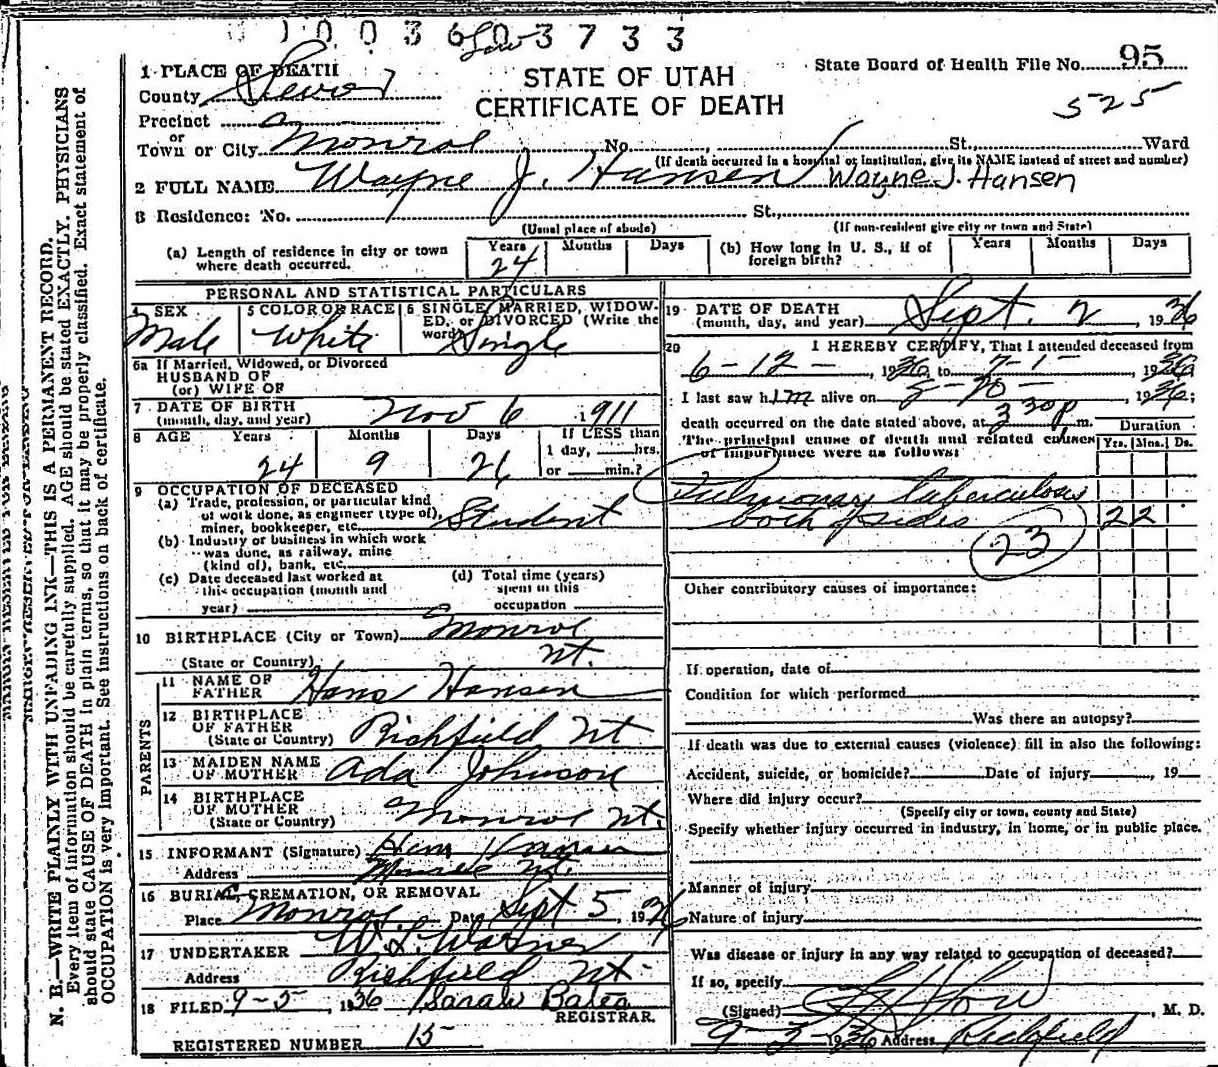 1003603733
STATE OF UTAH
CERTIFICATE OF DEATH
State Board of Health File No. 95
525
1 PLACE OF DEATH
County Sevier
Precinct
or
Town or City Monroe No. St., Ward
(If death occurred in a hospital or institution, give its NAME instead of street and number)
2 FULL NAME Wayne J. Hansen Wayne J. Hansen
3 Residence: No. St.,
(Usual place of abode) (If non-resident give city or town and State)
(a) Length of residence in city or town where death occurred. Years 24 Months Days
(b) How long in U. S., if of foreign birth? Years Months Days
PERSONAL AND STATISTICAL PARTICULARS
4 SEX Male
5 COLOR OR RACE White
6 SINGLE, MARRIED, WIDOWED, or DIVORCED (Write the word) Single
6a If Married, Widowed, or Divorced
HUSBAND OF
(or) WIFE OF
7 DATE OF BIRTH
(month, day, and year) Nov 6 1911
8 AGE Years 24 Months 9 Days 26 If LESS than
1 day, hrs.
or min.?
9 OCCUPATION OF DECEASED
(a) Trade, profession, or particular kind
of work done, as engineer (type of),
miner, bookkeeper, etc. Student
(b) Industry or business in which work
was done, as railway, mine
(kind of), bank, etc.
(c) Date deceased last worked at
this occupation (month and
year)
(d) Total time (years)
spent in this
occupation
10 BIRTHPLACE (City or Town) Monroe
(State or Country) Ut.
PARENTS
11 NAME OF FATHER Hans Hansen
12 BIRTHPLACE OF FATHER
(State or Country) Richfield Ut
13 MAIDEN NAME OF MOTHER Ada Johnson
14 BIRTHPLACE OF MOTHER
(State or Country) Monroe Ut.
15 INFORMANT (Signature) Hans Hansen
Address Monroe Ut.
16 BURIAL, CREMATION, OR REMOVAL
Place Monroe Date Sept 5, 1936
17 UNDERTAKER W. L.
Address Richfield Ut
18 FILED 9-5 1936 Sarah
REGISTRAR.
REGISTERED NUMBER 15
19 DATE OF DEATH
(month, day, and year) Sept. 2, 1936
20 I HEREBY CERTIFY, That I attended deceased from
6-12-, 1936, to 7-1-, 1936
I last saw him alive on 1936;
death occurred on the date stated above, at 3 30 p. m.
The principal cause of death and related causes
of importance were as follows:
Duration
Yrs. Mos. Ds.
Pulmonary tuberculosis
both sides 22
23
Other contributory causes of importance:
If operation, date of
Condition for which performed
Was there an autopsy?
If death was due to external causes (violence) fill in also the following:
Accident, suicide, or homicide? Date of injury , 19
Where did injury occur?
(Specify city or town, county and State)
Specify whether injury occurred in industry, in home, or in public place.
Manner of injury
Nature of injury
Was disease or injury in any way related to occupation of deceased?
If so, specify
(Signed) , M. D.
1936 Address Richfield
N. B.—WRITE PLAINLY WITH UNFADING INK—THIS IS A PERMANENT RECORD.
Every item of information should be carefully supplied. AGE should be stated EXACTLY. PHYSICIANS
should state CAUSE OF DEATH in plain terms, so that it may be properly classified. Exact statement of
OCCUPATION is very important. See instructions on back of certificate.